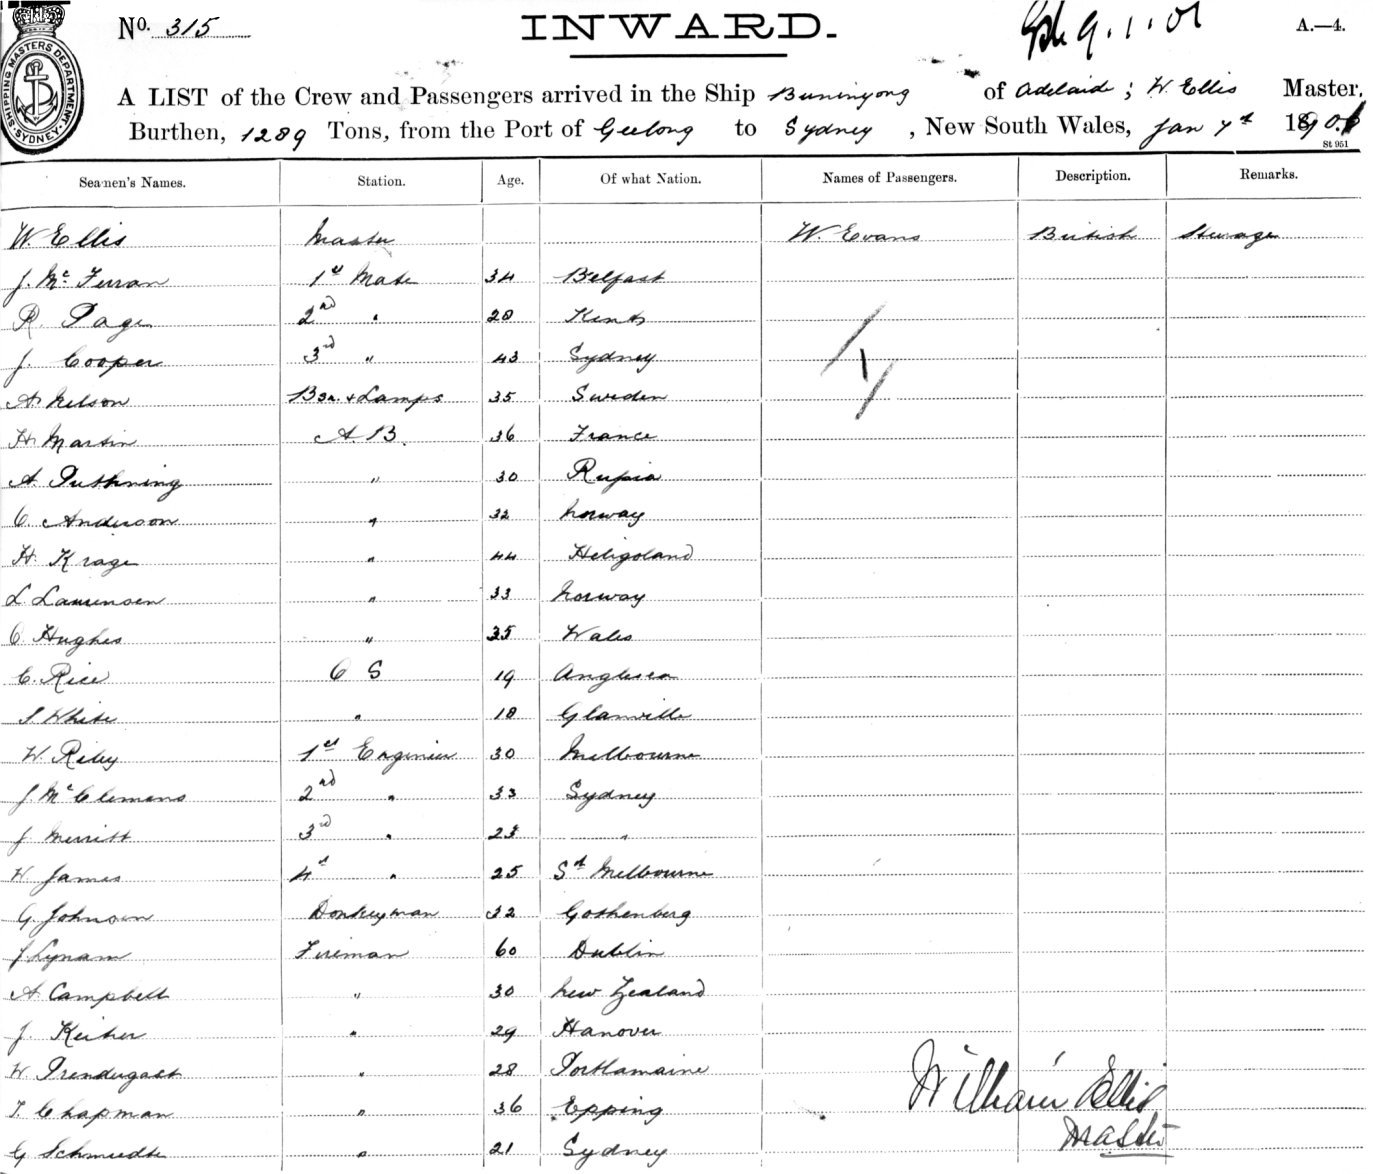 SHIPPING MASTERS DEPARTMENT. SYDNEY.
No. 315 INWARD. 9.1.01 A.—4.
A LIST of the Crew and Passengers arrived in the Ship Buninyong of Adelaide; W. Ellis Master,
Burthen, 1289 Tons, from the Port of Geelong to Sydney, New South Wales, Jan 7th
St 951
Seamen's Names. Station. Age. Of what Nation. Names of Passengers. Description. Remarks.
W. Ellis Master W. Evans British Steerage
J. Mc Ferran 1st Mate 34 Belfast
R. Page 2nd " 28 Kent
J. Cooper 3rd " 43 Sydney
A. Nelson Bsn. & Lamps 35 Sweden
H. Martin A.B. 36 France
A. Puthning " 30 Russia
C. Anderson " 32 Norway
H. Krage " 44 Heligoland
L Laurensen " 33 Norway
C Hughes " 35 Wales
E. Rice O S 19 Anglesea
S White " 18 Glanville
W. Riley 1st Engineer 30 Melbourne
J. Mc Clemens 2nd " 33 Sydney
J Merritt 3rd " 23 "
W. James 4th " 25 Sth Melbourne
G. Johnson Donkeyman 32 Gothenberg
J Lynam Fireman 60 Dublin
A Campbell " 30 New Zealand
J. " 29 Hanover
W. Prendergast " 28 Portlamaine
T. Chapman " 36 Epping
G Schmiedte " 21 Sydney
William Ellis
Master